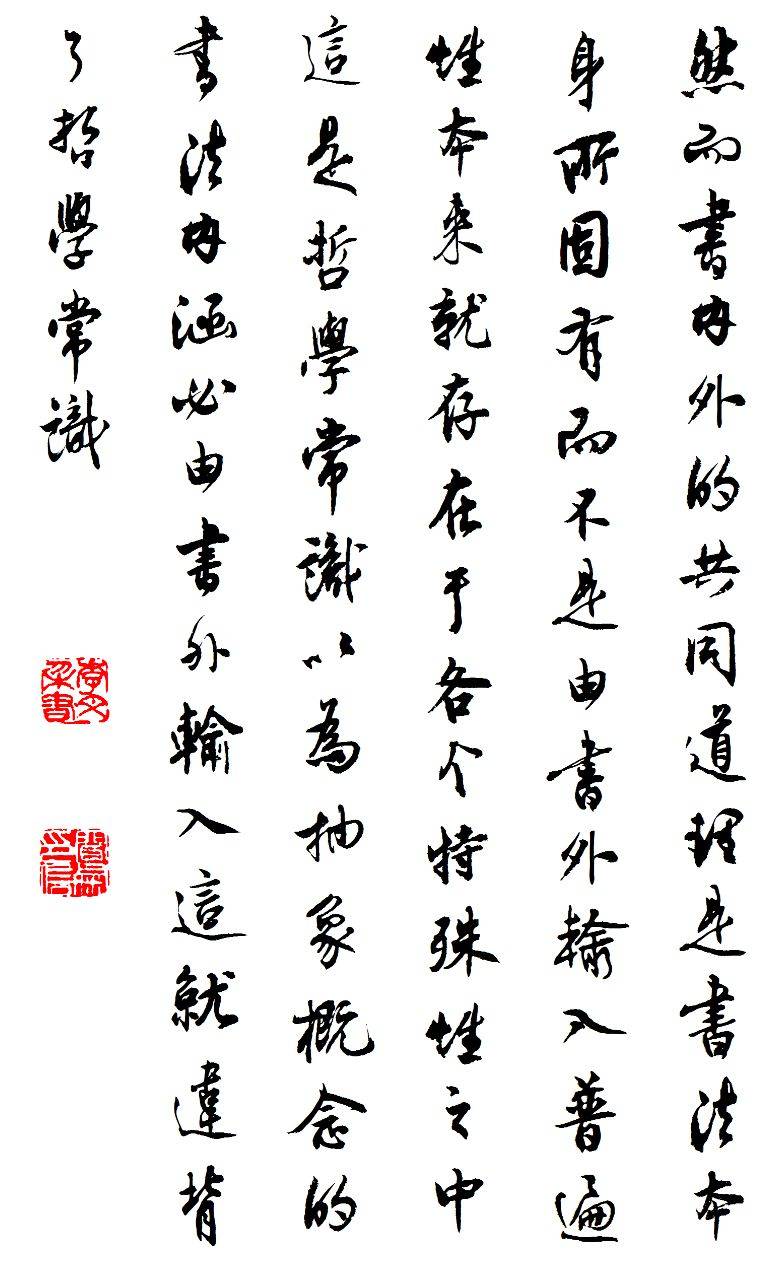 然而書内外的共同道理是書法本
身所固有而不是由書外輸入普遍
性本来就存在于各个特殊性之中
這是哲學常識以為抽象概念的
書法内涵必由書外輸入這就違背
了哲學常識